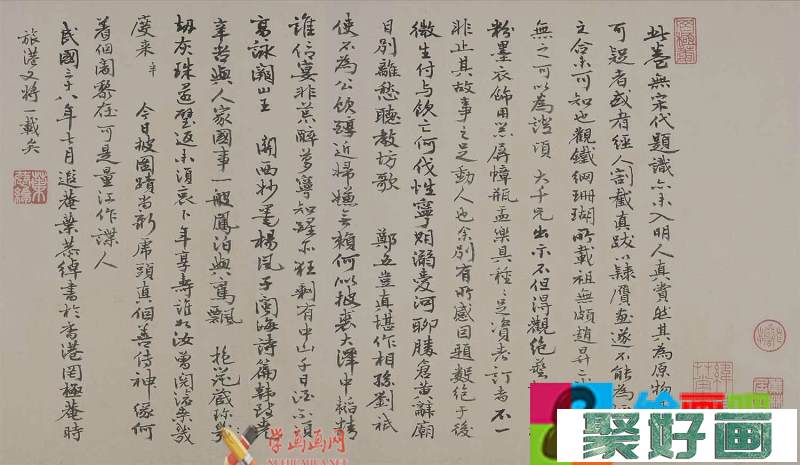 此卷無宋代題識亦未入明人真賞然其為原物
可疑者或者經人割截真跋以隸贗畫遂不能為
之合亦未可知也觀鐵網珊瑚所載祖無頗趙昇
無之可以為證項大千兄出示不但得觀絕藝
粉墨衣飾用器屏幛瓶盂樂具種種足資考訂者不一
非止其故事之足動人也余別有所感因題數絕于後
微生付與飲亡何伐性寧期溺愛河聊勝倉黃辭廟
日別離愁聽教坊歌 鄭五豈真堪作相孫劉祇
使不為公飲醇近婦嫌無賴何似披裘大澤中韜精
誰信寔非荒醉夢寧知醒亦狂剩有中山千日酒不須
高詠闕山王 關西抄異楊風子 海詩篇韓致光
辛苦與人家國事一般鳳泊與鸞飄
劫灰珠還璧返未須哀卜年享壽誰如汝曾閱滄桑幾
度來 今日披圖蹟尚新席頭真個善傳神緣何
着個闍黎在可是量江作諜人
民國三十八年七月遐庵葉恭綽書於香港罔極庵時
旅港又將一載矣
学画画网
XUEHUAHUA.NET
绘画吧
聚好画